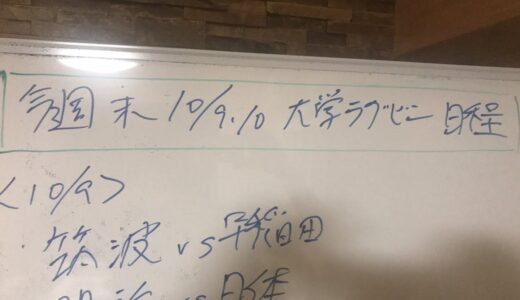 今週末 10/9.10 大学ラグビー 日程
<10/9>
筑波 vs 早稲田
明治 vs 日体